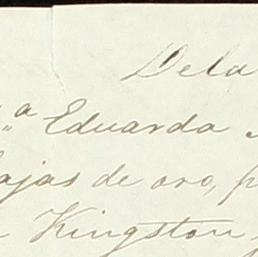 Dela
Eduarda
ajas de oro, p
Kingston